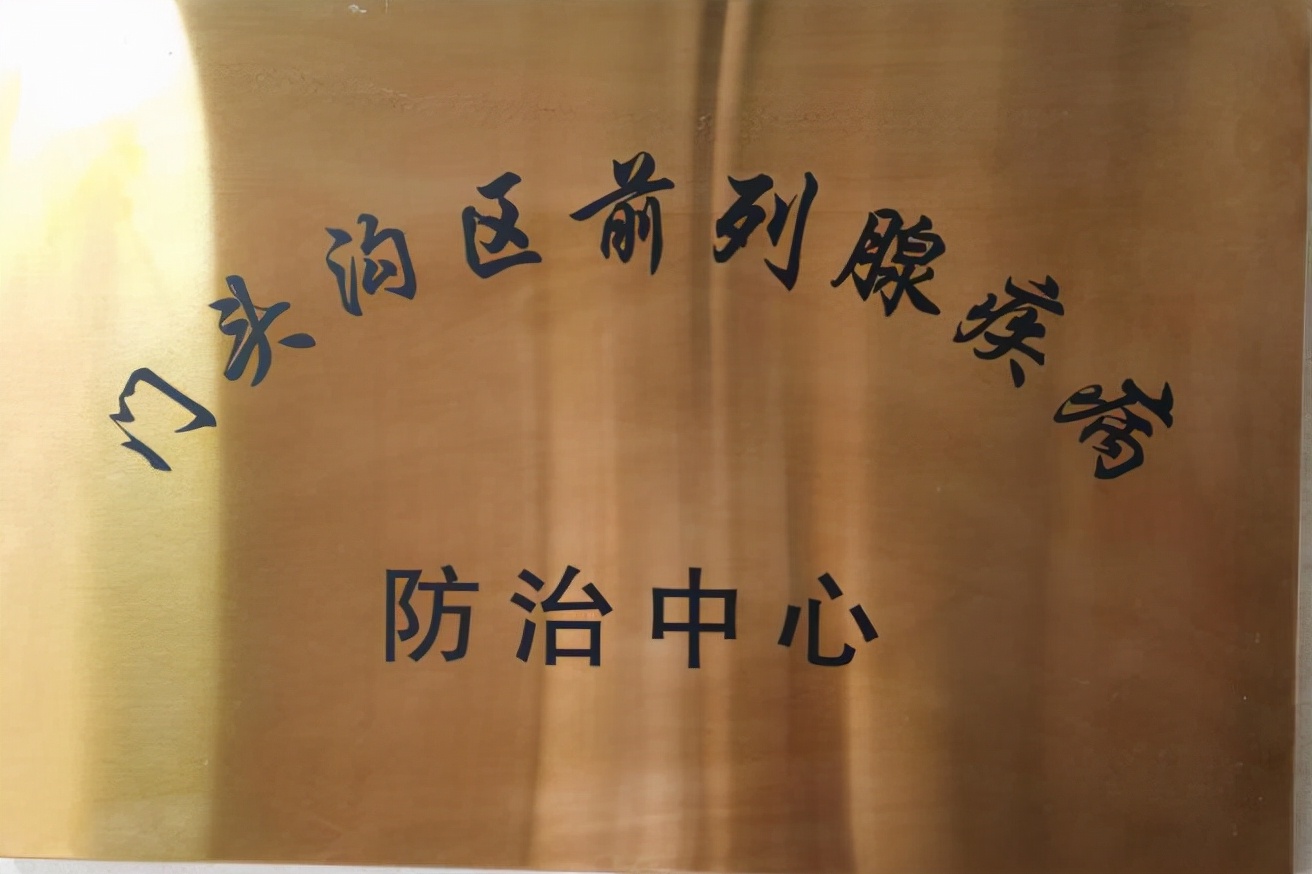 门头沟区前列腺疾病
防治中心